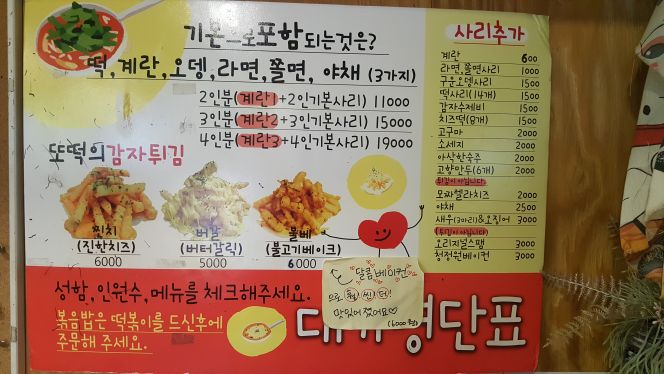 기본으로포함되는것은?
떡,계란,오뎅,라면,쫄면, 야채 (3가지)
2인분(계란1+2인기본사리) 11000
3인분(계란2+3인기본사리) 15000
4인분(계란3+4인기본사리) 19000
또떡의감자튀김
찐치
(진한치즈)
6000
버갈
(버터갈릭)
5000
불베
(불고기베이크)
6000
사리추가
계란 600
라면,쫄면사리 1000
구운오뎅사리 1500
떡사리(14개) 1500
감자수제비 1500
치즈떡(8개) 1500
고구마 2000
소세지 2000
아삭한숙주 2000
고향만두(6개) 2000
튀김이 아닙니다
모짜렐라치즈 2000
야채 2500
새우(3마리)&오징어 3000
(튀김이아닙니다)
오리지널스팸 3000
청정원베이컨 3000
달콤베이컨
으로 훨!씬!더!
맛있어졌어요♡
(6000원)
성함,인원수,메뉴를 체크해주세요.
볶음밥은 떡볶이를 드신후에
주문해 주세요.
명단표